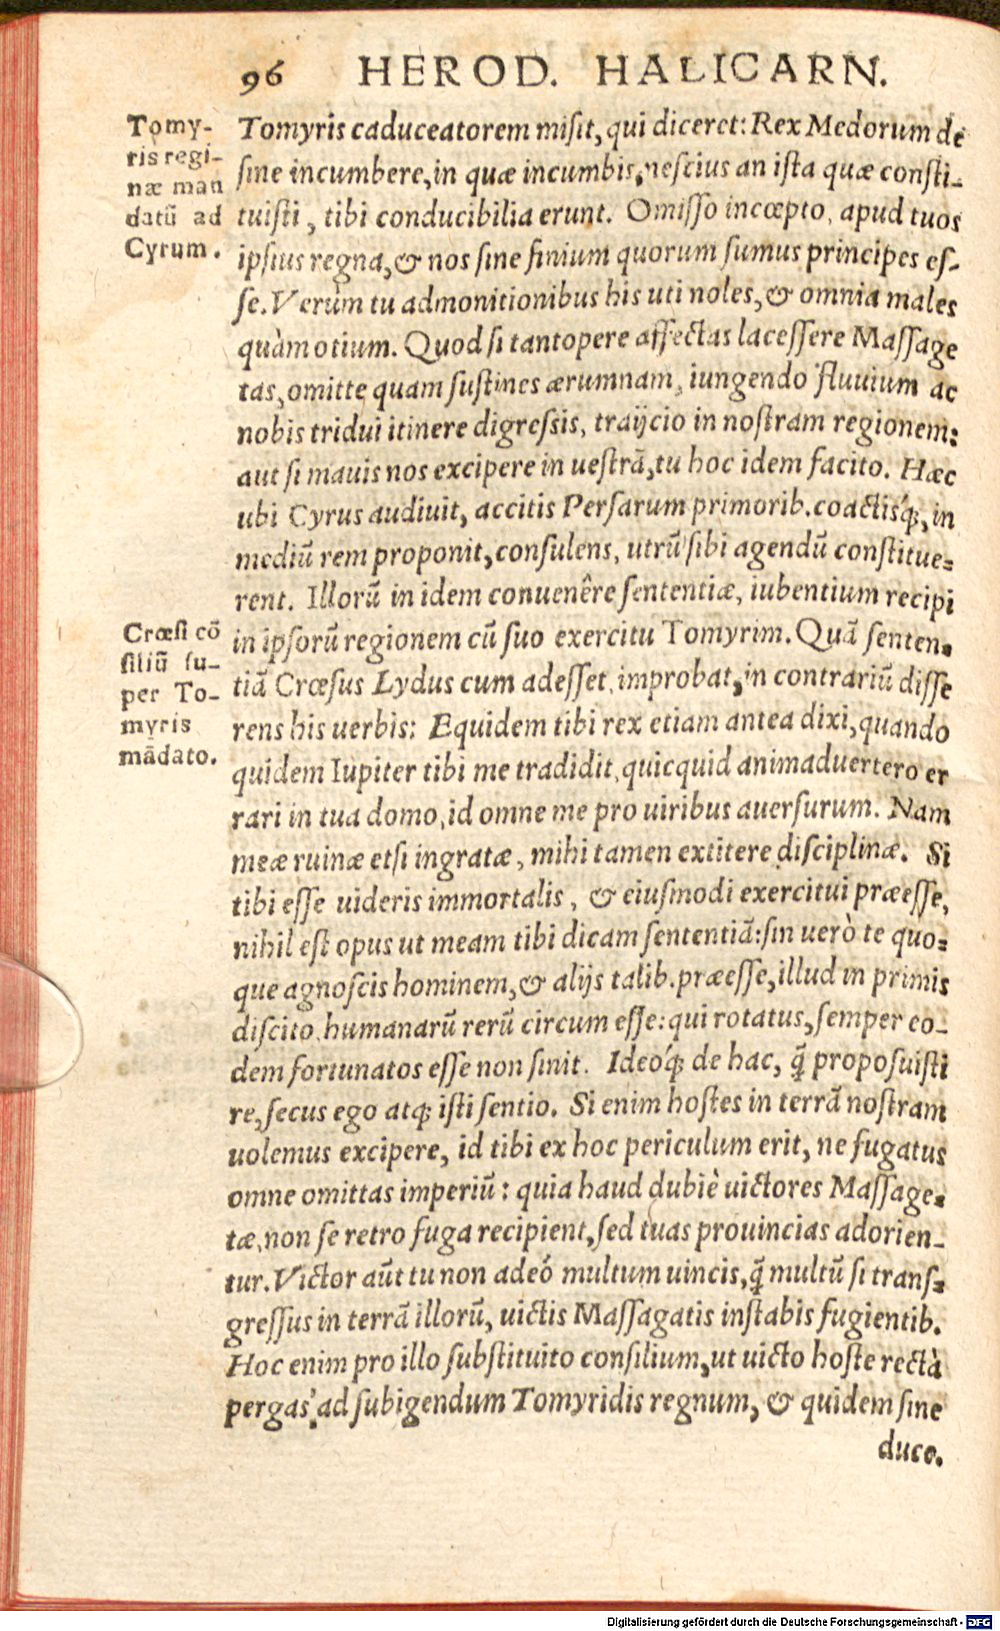 96 HEROD. HALICARN.
Tomy-
ris regi-
næ man
datũ ad
Cyrum.
Tomyris caduceatorem misit, qui diceret: Rex Medorum de
sine incumbere, in quæ incumbis, nescius an ista quæ consti-
tuisti, tibi conducibilia erunt. Omisso incœpto, apud tuos
ipsius regna, & nos sine finium quorum sumus principes es-
se. Verùm tu admonitionibus his uti noles, & omnia males
quàm otium. Quod si tantopere affectas lacessere Massage
tas, omitte quam sustines ærumnam, iungendo fluuium ac
nobis tridui itinere digressis, traijcio in nostram regionem:
aut si mauis nos excipere in uestrã, tu hoc idem facito. Hæc
ubi Cyrus audiuit, accitis Persarum primorib. coactisq́;, in
mediũ rem proponit, consulens, utrũ sibi agendũ constitue=
rent. Illorũ in idem conuenêre sententiæ, iubentium recipi
in ipsorũ regionem cũ suo exercitu Tomyrim. Quã senten=
tiã Crœsus Lydus cum adesset, improbat, in contrariũ disse
rens his uerbis: Equidem tibi rex etiam antea dixi, quando
quidem Iupiter tibi me tradidit, quicquid animaduertero er
rari in tua domo, id omne me pro uiribus auersurum. Nam
meæ ruinæ etsi ingratæ, mihi tamen extitere disciplinæ. Si
tibi esse uideris immortalis, & eiusmodi exercitui præesse,
nihil est opus ut meam tibi dicam sententiã: sin uerò te quo=
que agnoscis hominem, & alijs talib. præesse, illud in primis
discito, humanarũ rerũ circum esse: qui rotatus, semper eo-
dem fortunatos esse non sinit. Ideoq́; de hac, q̃ proposuisti
re, secus ego atq; isti sentio. Si enim hostes in terrã nostram
uolemus excipere, id tibi ex hoc periculum erit, ne fugatus
omne omittas imperiũ: quia haud dubiè uictores Massage=
tæ, non se retro fuga recipient, sed tuas prouincias adorien-
tur. Victor aũt tu non adeò multum uincis, q̃ multũ si trans=
gressus in terrã illorũ, uictis Massagatis instabis fugientib.
Hoc enim pro illo substituito consilium, ut uicto hoste rectà
pergas ad subigendum Tomyridis regnum, & quidem sine
duce.
Crœsi cõ
siliũ su-
per To-
myris
mãdato.
Digitalisierung gefördert durch die Deutsche Forschungsgemeinschaft - DFG